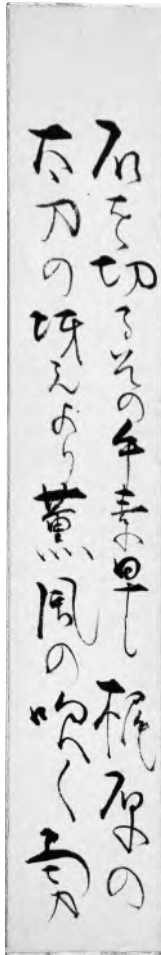 石を切るその手素早し梶原の
太刀の冴えより薫風の吹く